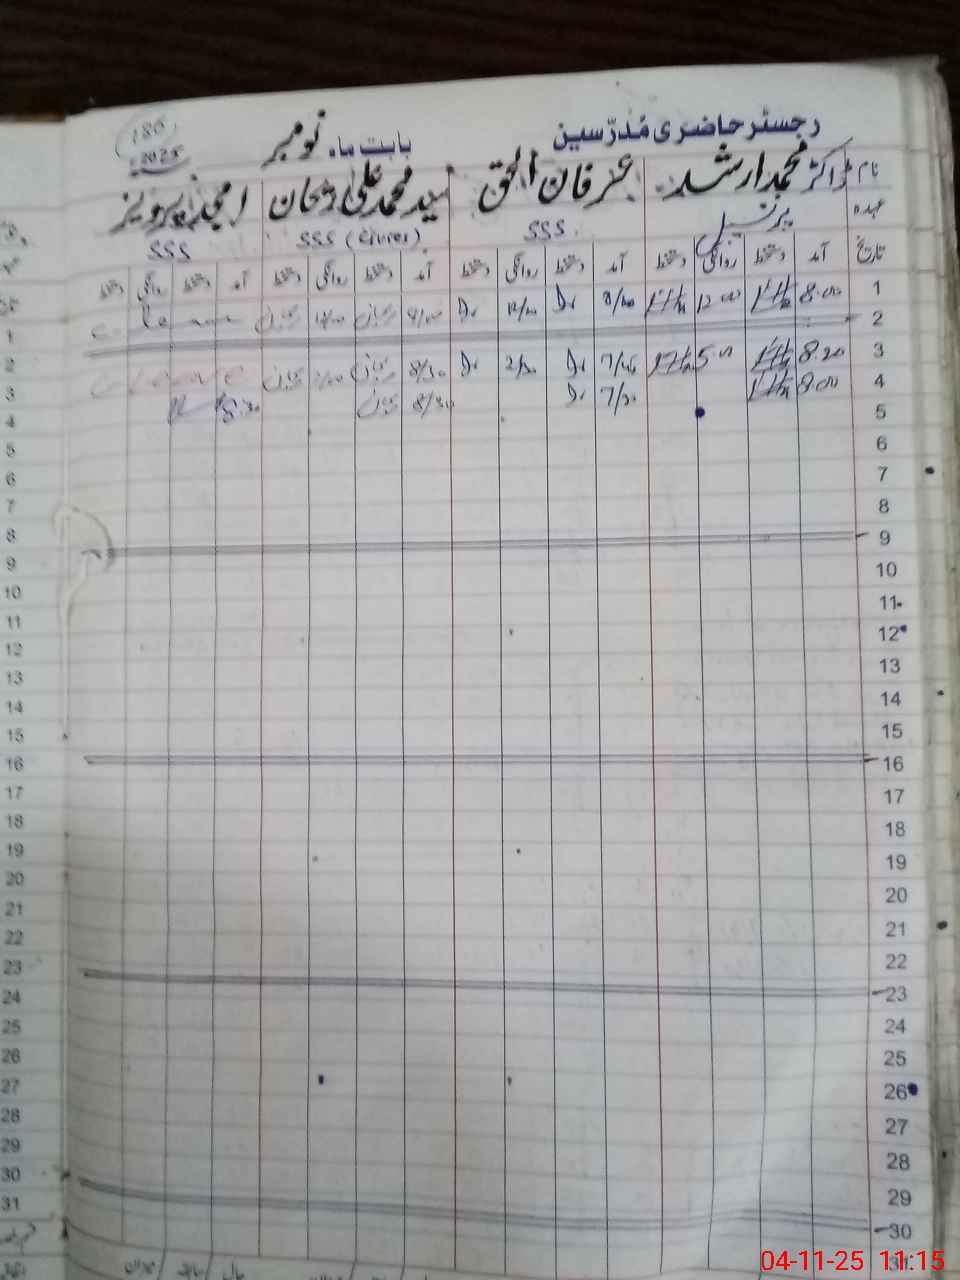 رجسٹر حاضری مُدرّسین بابت ماہ نومبر 2025
نام ڈاکٹر محمد ارشد عرفان الحق سید محمد علی امجد پرویز
عہدہ پرنسپل SSS SSS (Civics) SSS
تاریخ آمد دستخط روانگی دستخط آمد دستخط روانگی دستخط آمد دستخط روانگی دستخط آمد دستخط روانگی دستخط
1 8.00 12.00 8/00 12/00 8/00 12/00 c. leave
2
3 8.20 5.00 7/45 2/30 8/30 c. Leave
4 8.00 7/30 8/30 8.30
5
6
7
8
9
10
11
12
13
14
15
16
17
18
19
20
21
22
23
24
25
26
27
28
29
30
31
1
2
3
4
5
6
7
8
9
10
11
12
13
14
15
16
17
18
19
20
21
22
23
24
25
26
27
28
29
30
31
04-11-25 11:15